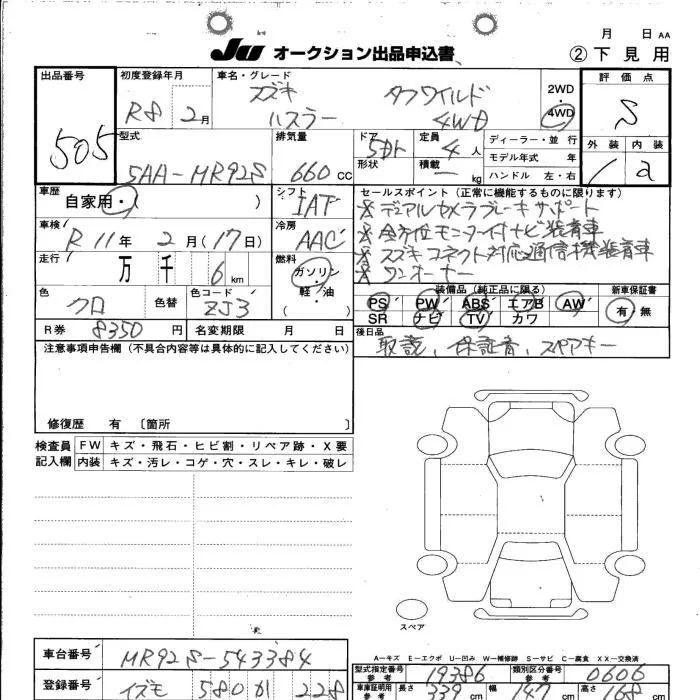 月 日 AA
JU オークション出品申込書 ②下見用
出品番号 初度登録年月 車名・グレード 評価点
505 R8 2月 スズキ ハスラー タフワイルド 4WD 2WD ・ 4WD S
型式 排気量 ドア 形状 定員 積載 ディーラー・並行 外装 内装
5AA-MR92S 660cc 5ドア 4人 kg モデル年式 年 a
ハンドル 左・右
車歴 シフト セールスポイント(正常に機能するものに限ります)
自家用・( ) IAT ※デュアルカメラブレーキサポート
車検 冷房 ※全方位モニター付ナビ装着車
R11年 2月(17日) AAC ※スズキコネクト対応通信機装着車
走行 燃料 ※ワンオーナー
万 千 6km ガソリン・軽油( )
装備品(純正品に限る) 新車保証書
色 色替 色コード PS PW ABS エアB AW 有・無
クロ ZJ3 SR ナビ TV カワ
R券 8350円 名変期限 月 日 後日品
注意事項申告欄(不具合内容等は具体的に記入してください) 取説、保証書、スペアキー
修復歴 有 〔箇所 〕
検査員 FW キズ・飛石・ヒビ割・リペア跡・X要
記入欄 内装 キズ・汚レ・コゲ・穴・スレ・キレ・破レ
スペア
A=キズ E=エクボ U=凹み W=補修跡 S=サビ C=腐食 XX=交換済
車台番号 MR92S-543384 型式指定番号 参考 19386 類別区分番号 参考 0606
登録番号 イズモ 580 か 228 車庫証明用 参考 長さ 339cm 幅 147cm 高さ 168cm